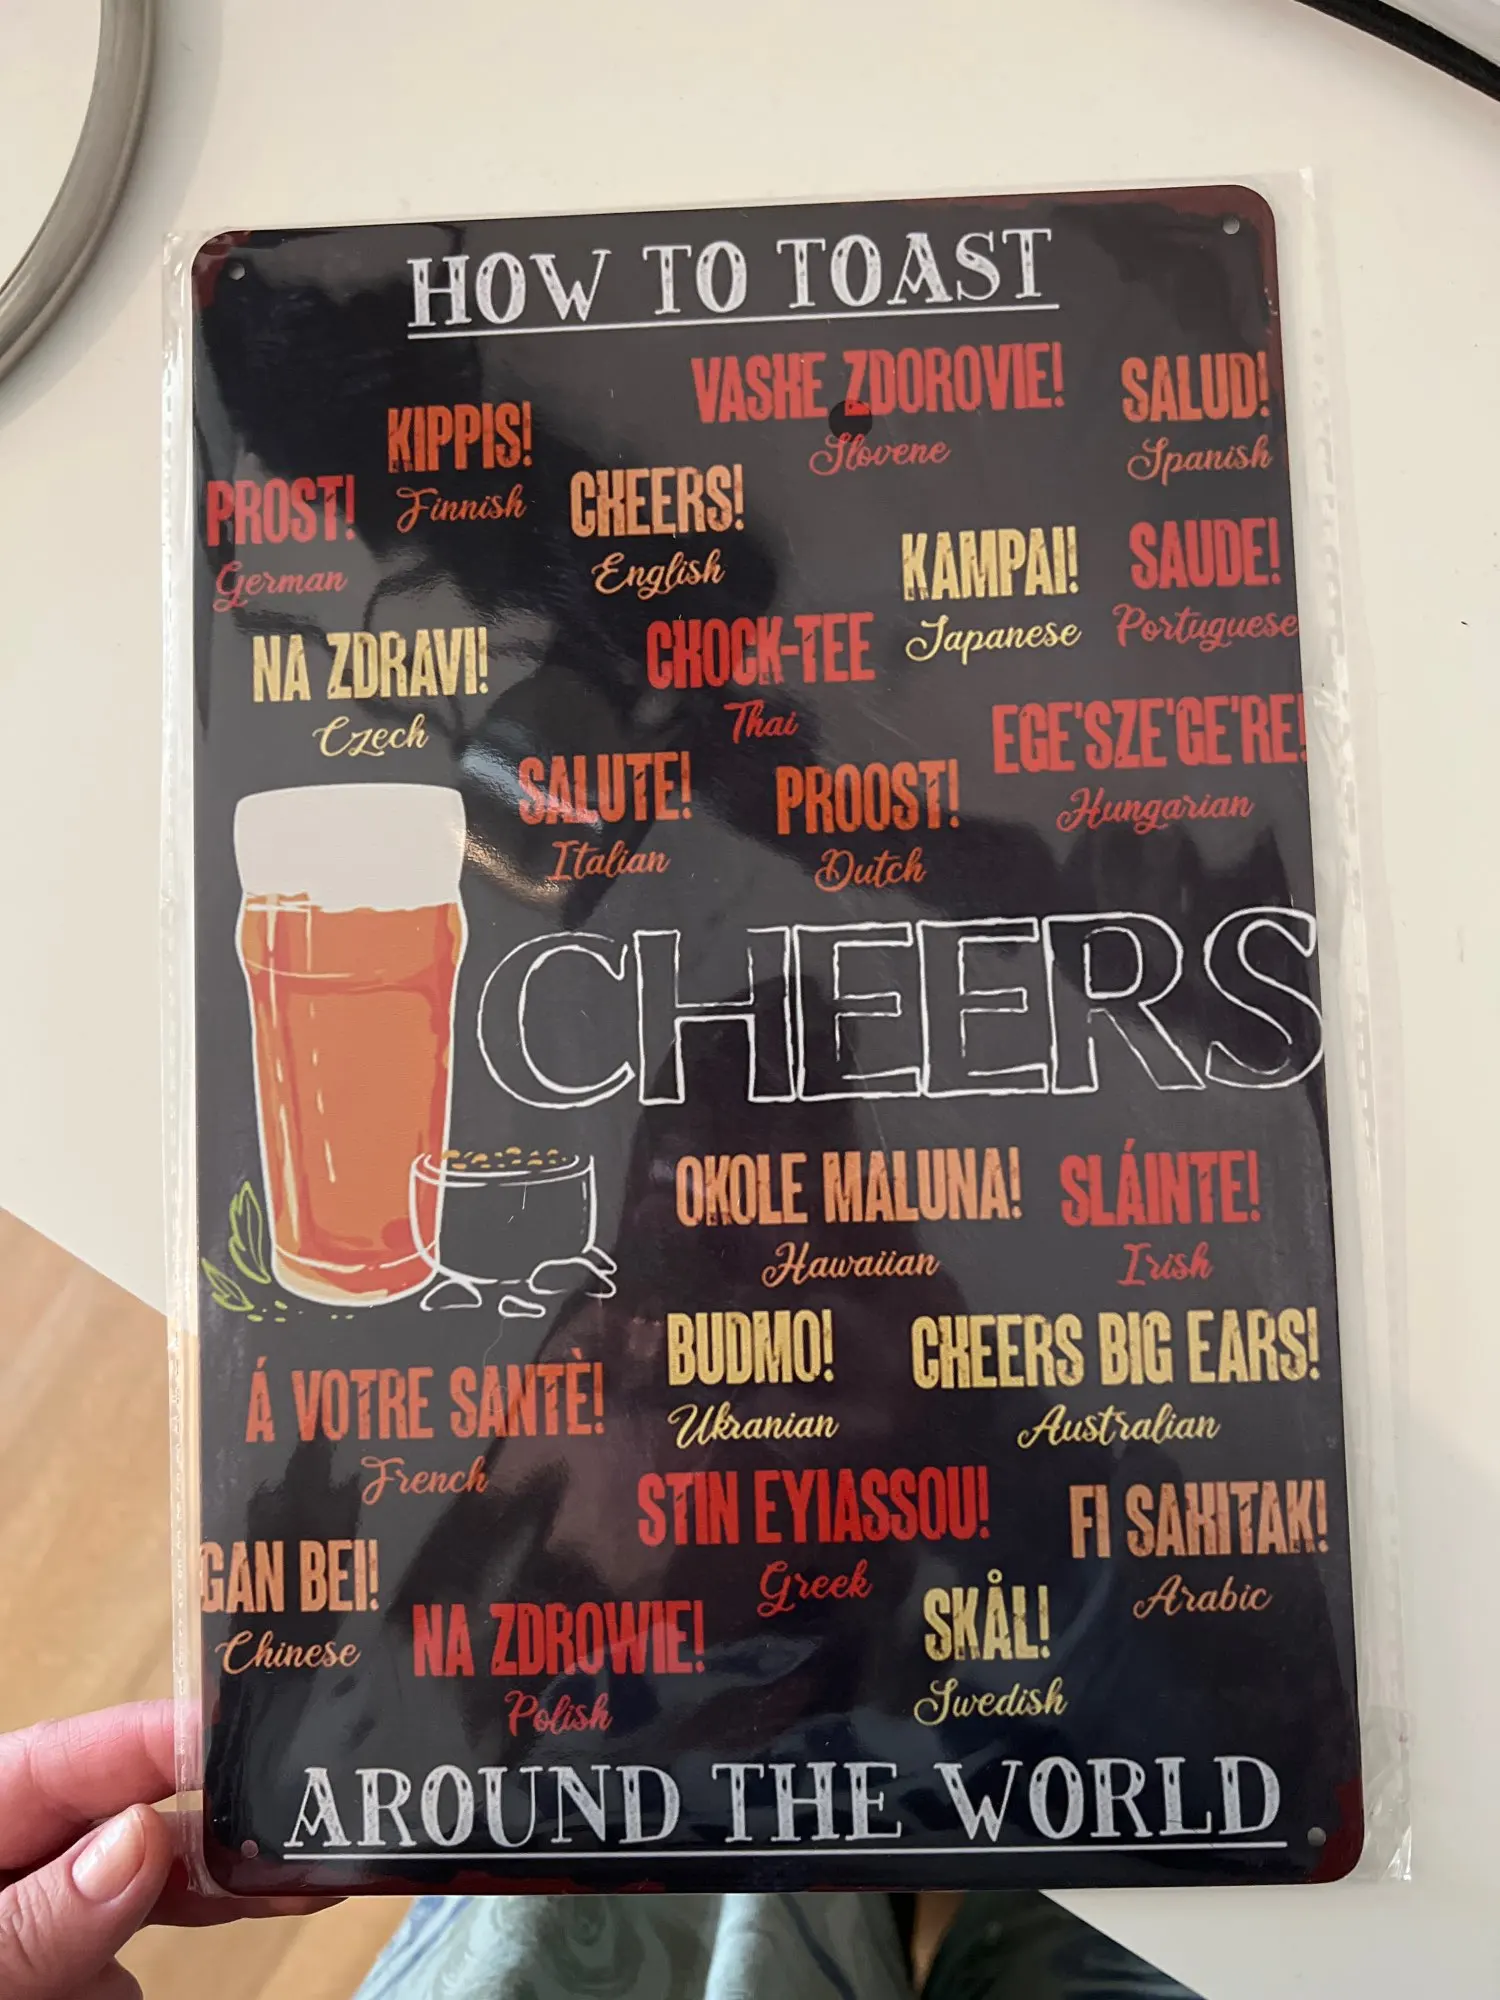 HOW TO TOAST
VASHE ZDOROVIE!
Slovene
SALUD!
Spanish
KIPPIS!
Finnish
PROST!
German
CHEERS!
English
KAMPAI!
Japanese
SAUDE!
Portuguese
NA ZDRAVI!
Czech
CHOCK-TEE
Thai
EGE'SZE'GE'RE!
Hungarian
SALUTE!
Italian
PROOST!
Dutch
CHEERS
OKOLE MALUNA!
Hawaiian
SLÁINTE!
Irish
BUDMO!
Ukranian
CHEERS BIG EARS!
Australian
Á VOTRE SANTÈ!
French
STIN EYIASSOU!
Greek
FI SAHITAK!
Arabic
GAN BEI!
Chinese
NA ZDROWIE!
Polish
SKÅL!
Swedish
AROUND THE WORLD